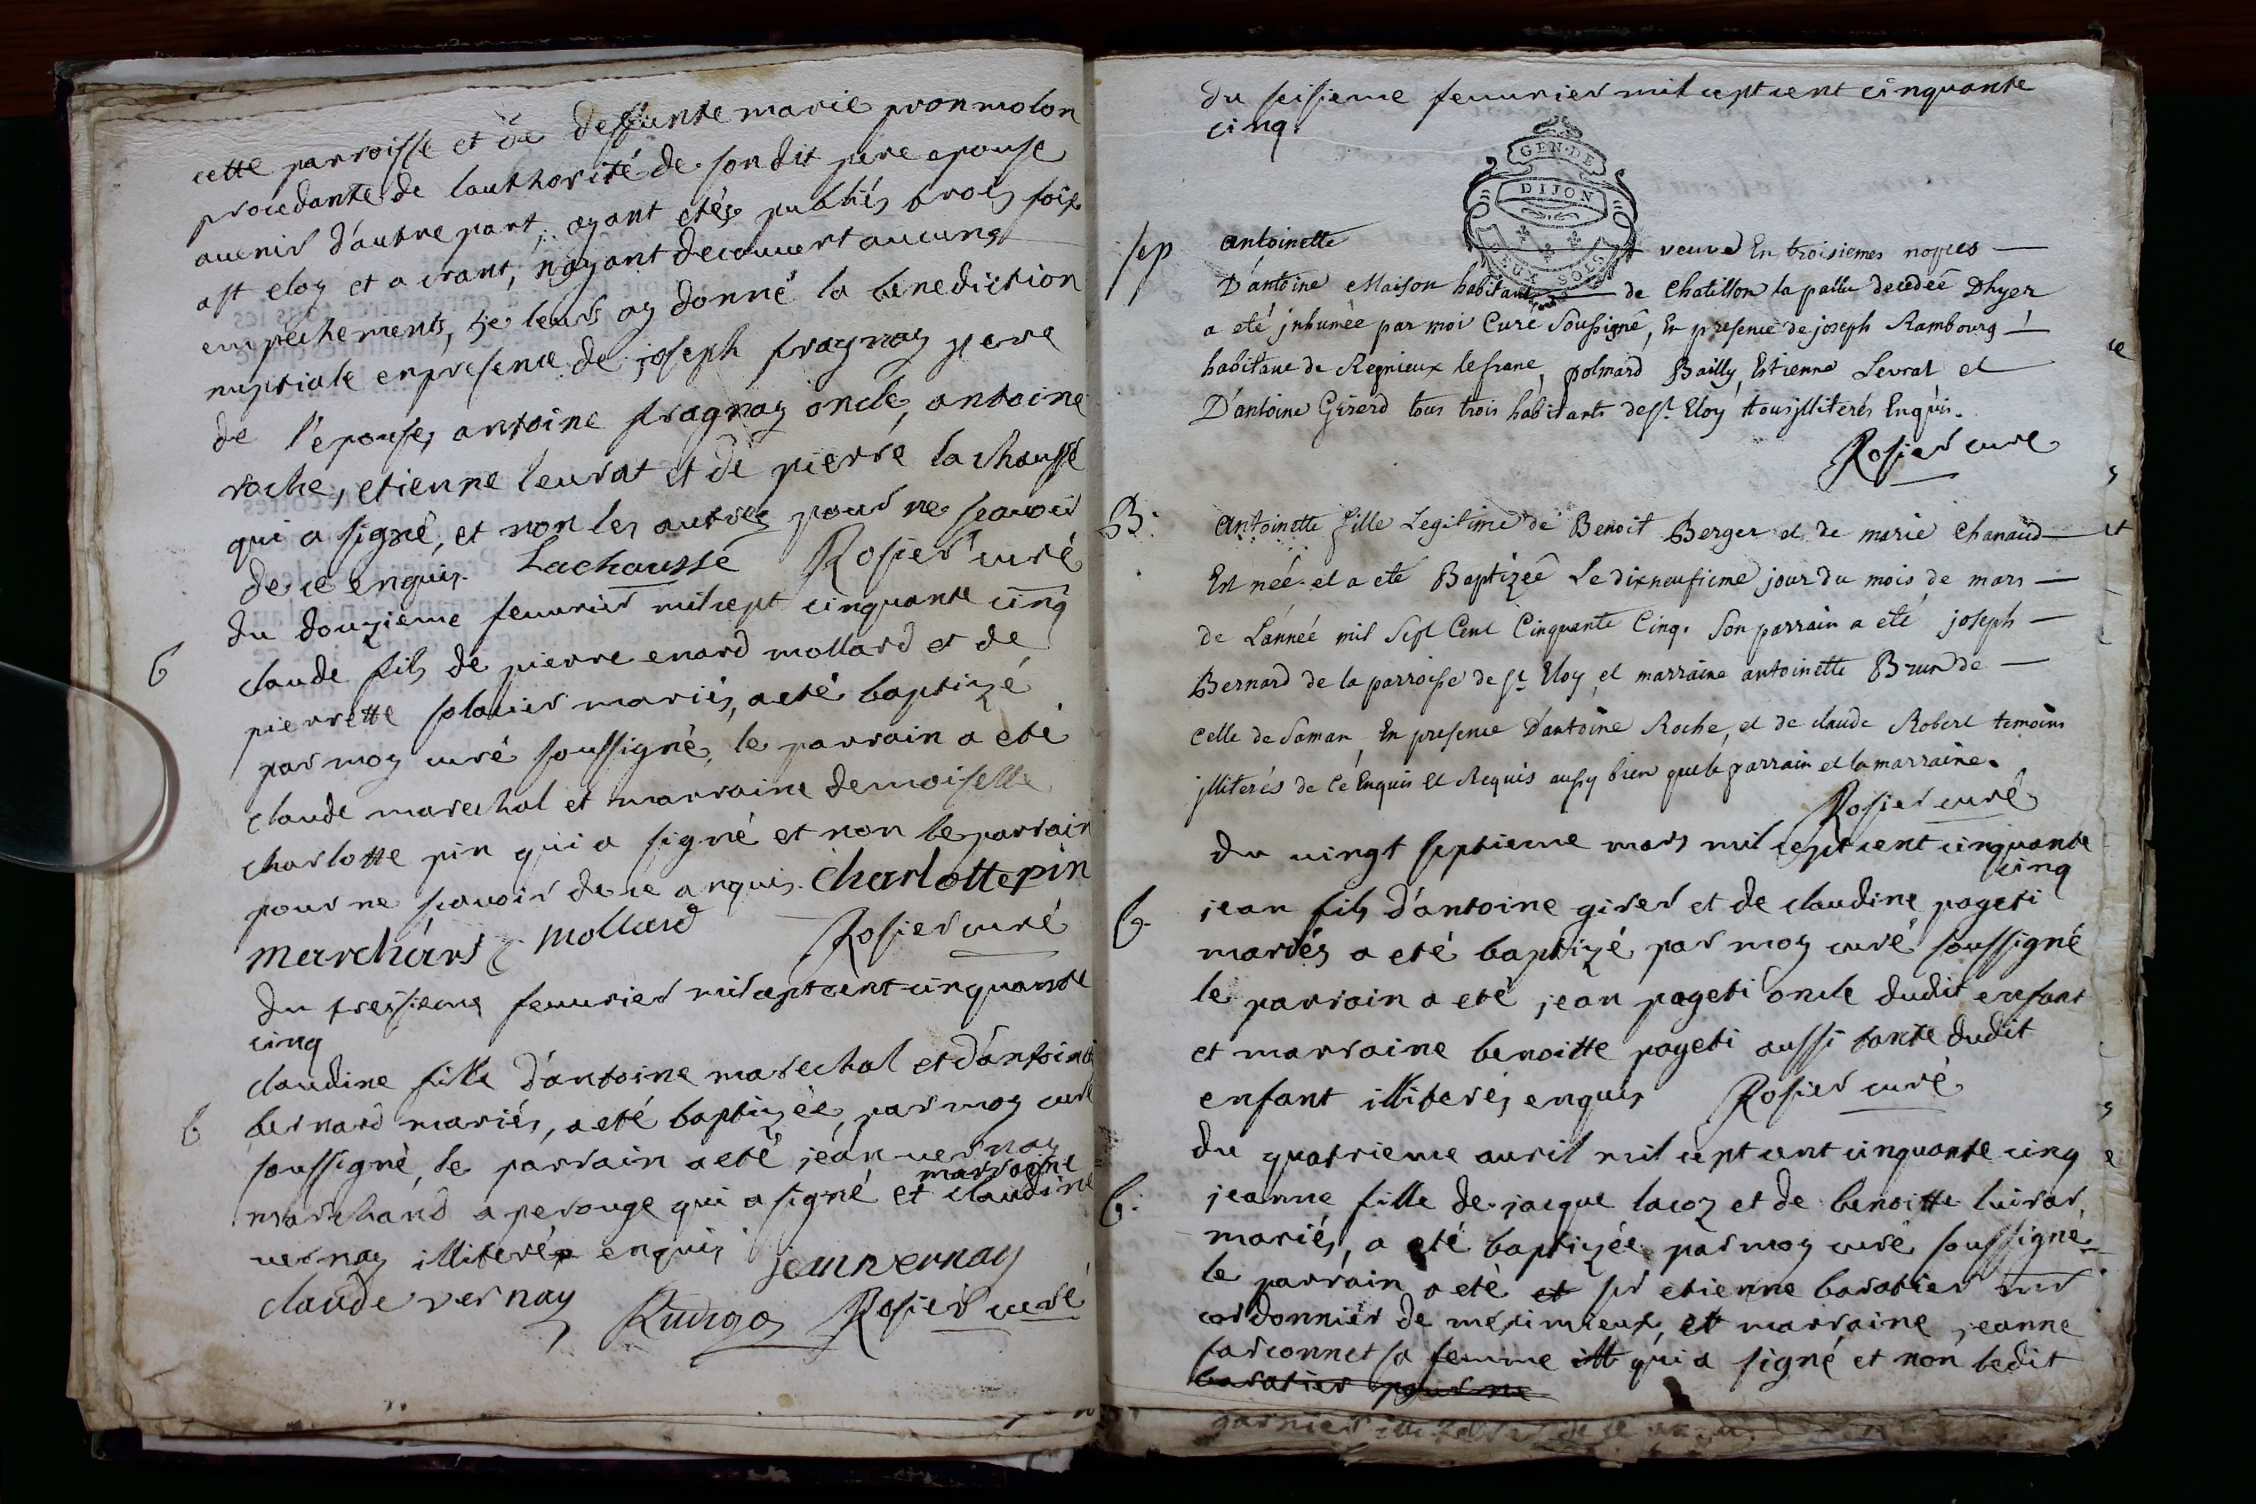 cette parroisse et de deffunte marie pronmolon
procedante de lauthorité de son dit pere epouse
auenir d'autre part, ayant etés publiés trois fois
a st eloy et a crant, n'ayant decouuert aucuns
empechements, je leurs ay donné la benediction
nuptiale en presence de joseph fragnay pere
de l'epouse, antoine fragnay oncle, antoine
roche, etienne leurat et de pierre lachaussé
qui a signé, et non les autres pour ne scauoir
de ce enquis. Lachaussé Rosier curé
du douzieme feuurier mil sept cinquante cinq
b claude fils de pierre enard mollard et de
pierrette mariés, a eté baptizé
par moy curé soussigné, le parrain a eté
claude marechal et marraine demoiselle
charlotte pin qui a signé et non le parrain
pour ne scauoir de ce anquis. charlotte pin
marchans mollard Rosier curé
du tressieme feuurier mil sept cent cinquante
cinq
claudine fille d'antoine marechal et d'antoine
b bernard mariés, a eté baptizée, par moy curé
soussigné, le parrain a eté jean uernay
marraine
marchand a perouge qui a signé et claudine
uernay illiterés enquis jean vernay
claude vernay Rudigoz Rosier curé
du seisieme feuurier mil sept cent cinquante
cinq.
GEN. DE
DIJON
DEUX SOLS
sep antoinette veuve En troisiemes nopces
D'antoine Maison habitant de Chatillon la pallu decedée Dhyer
a eté jnhumée par moi Curé Soussigné, En presence de joseph Rambourg
habitant de Regnieux le franc, polmard Bailly, Estienne Levrat et
D'antoine Girerd tous trois habitants de St. Eloy tous jlliterés Enquis.
Rosier curé
B: Antoinette fille Legitime de Benoit Berger et de marie Chanaud
Est née et a eté Baptizeé Le dixneufieme jour du mois de mars
de L'anneé mil Sept Cent Cinquante Cinq. Son parrain a eté joseph
Bernard de la parroisse de St. Eloy et marraine antoinette Brun de
celle de Saman, En presence D'antoine Roche, et de claude Robert temoins
jlliterés de Cé Enquis et Requis aussy bien que le parrain et la marraine.
Rosier curé
du uingt septieme mars mil sept cent cinquante
cinq
b. jean fils d'antoine girer et de claudine pageti
mariés a eté baptizé par moy curé soussigné
le parrain a eté jean pageti oncle dudit enfant
et marraine benoitte pageti aussi tante dudit
enfant illiterés enquis Rosier curé
du quatrieme auril mil sept cent cinquante cinq
b: jeanne fille de jacque lacoz et de benoitte luirar
mariés, a eté baptizée par moy curé soussigné
le parrain a eté et sr etienne baratier mr
cordonnier de meximieux, et marraine jeanne
sarconnet sa femme illt qui a signé et non ledit
baratier pour ne